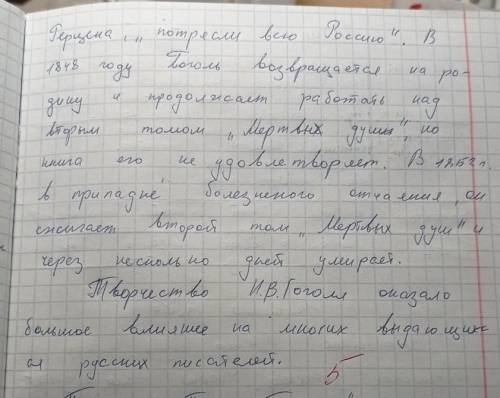 Герцена, „потрясли всю Россию". В
1848 году Гоголь возвращается на ро-
дину и продолжает работать над
вторым томом „Мертвых душ", но
книга его не удовлетворяет. В 1852 г.
в припадке болезненого отчаяния, он
сжигает второй том „Мертвых душ" и
через несколько дней умирает.
Творчество Н.В.Гоголя оказало
большое влияние на многих выдающих-
ся русских писателей.
5